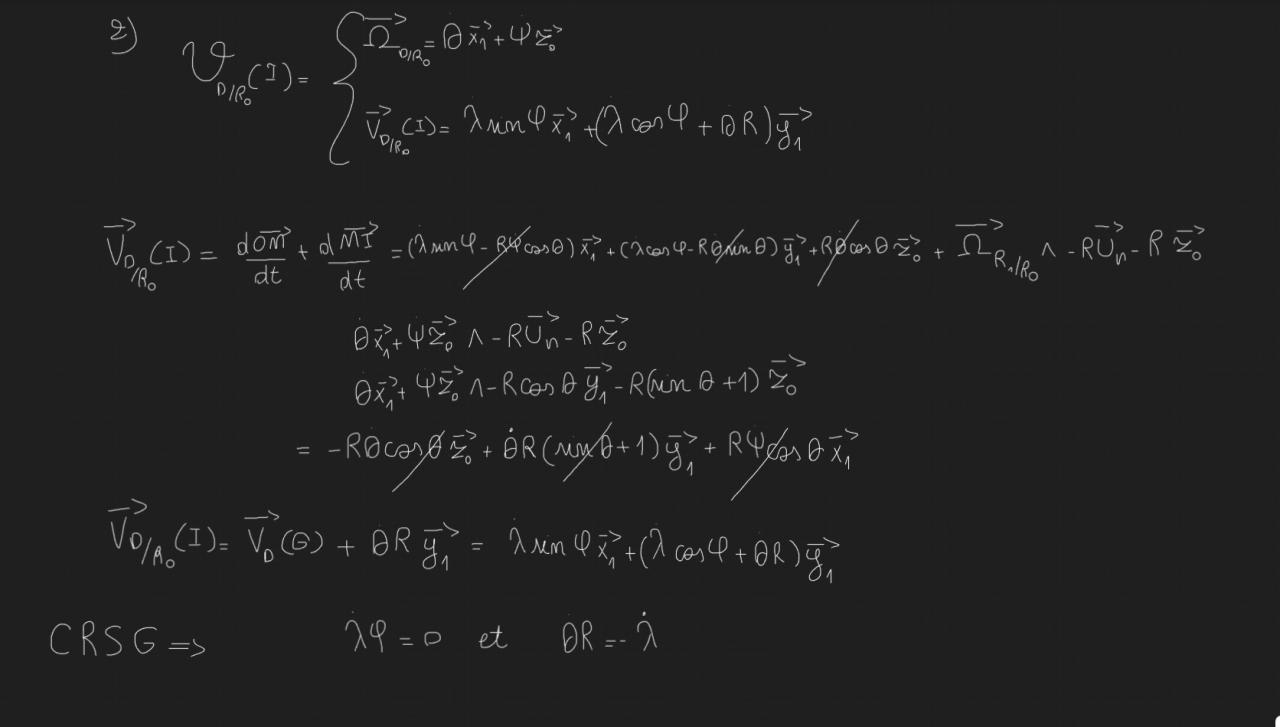 2)
𝒱_{D/R₀}(I) = { Ω⃗_{D/R₀} = θ̇ x⃗₁ + ψ̇ z⃗₀
V⃗_{D/R₀}(I) = λ̇ sin φ x⃗₁ + (λ̇ cos φ + θ̇ R) y⃗₁
V⃗_{D/R₀}(I) = dOM⃗/dt + dMI⃗/dt = (λ̇ sin φ - Rψ̇ cos θ) x⃗₁ + (λ̇ cos φ - Rθ̇ sin θ) y⃗₁ + Rθ̇ cos θ z⃗₀ + Ω⃗_{R₁/R₀} ∧ -RU⃗ₙ - R z⃗₀
θ̇ x⃗₁ + ψ̇ z⃗₀ ∧ -RU⃗ₙ - R z⃗₀
θ̇ x⃗₁ + ψ̇ z⃗₀ ∧ -R cos θ y⃗₁ - R(sin θ + 1) z⃗₀
= -Rθ̇ cos θ z⃗₀ + θ̇ R (sin θ + 1) y⃗₁ + Rψ̇ cos θ x⃗₁
V⃗_{D/R₀}(I) = V⃗_D(G) + θ̇ R y⃗₁ = λ̇ sin φ x⃗₁ + (λ̇ cos φ + θ̇ R) y⃗₁
CRSG => λ̇ φ = 0 et θ̇ R = - λ̇